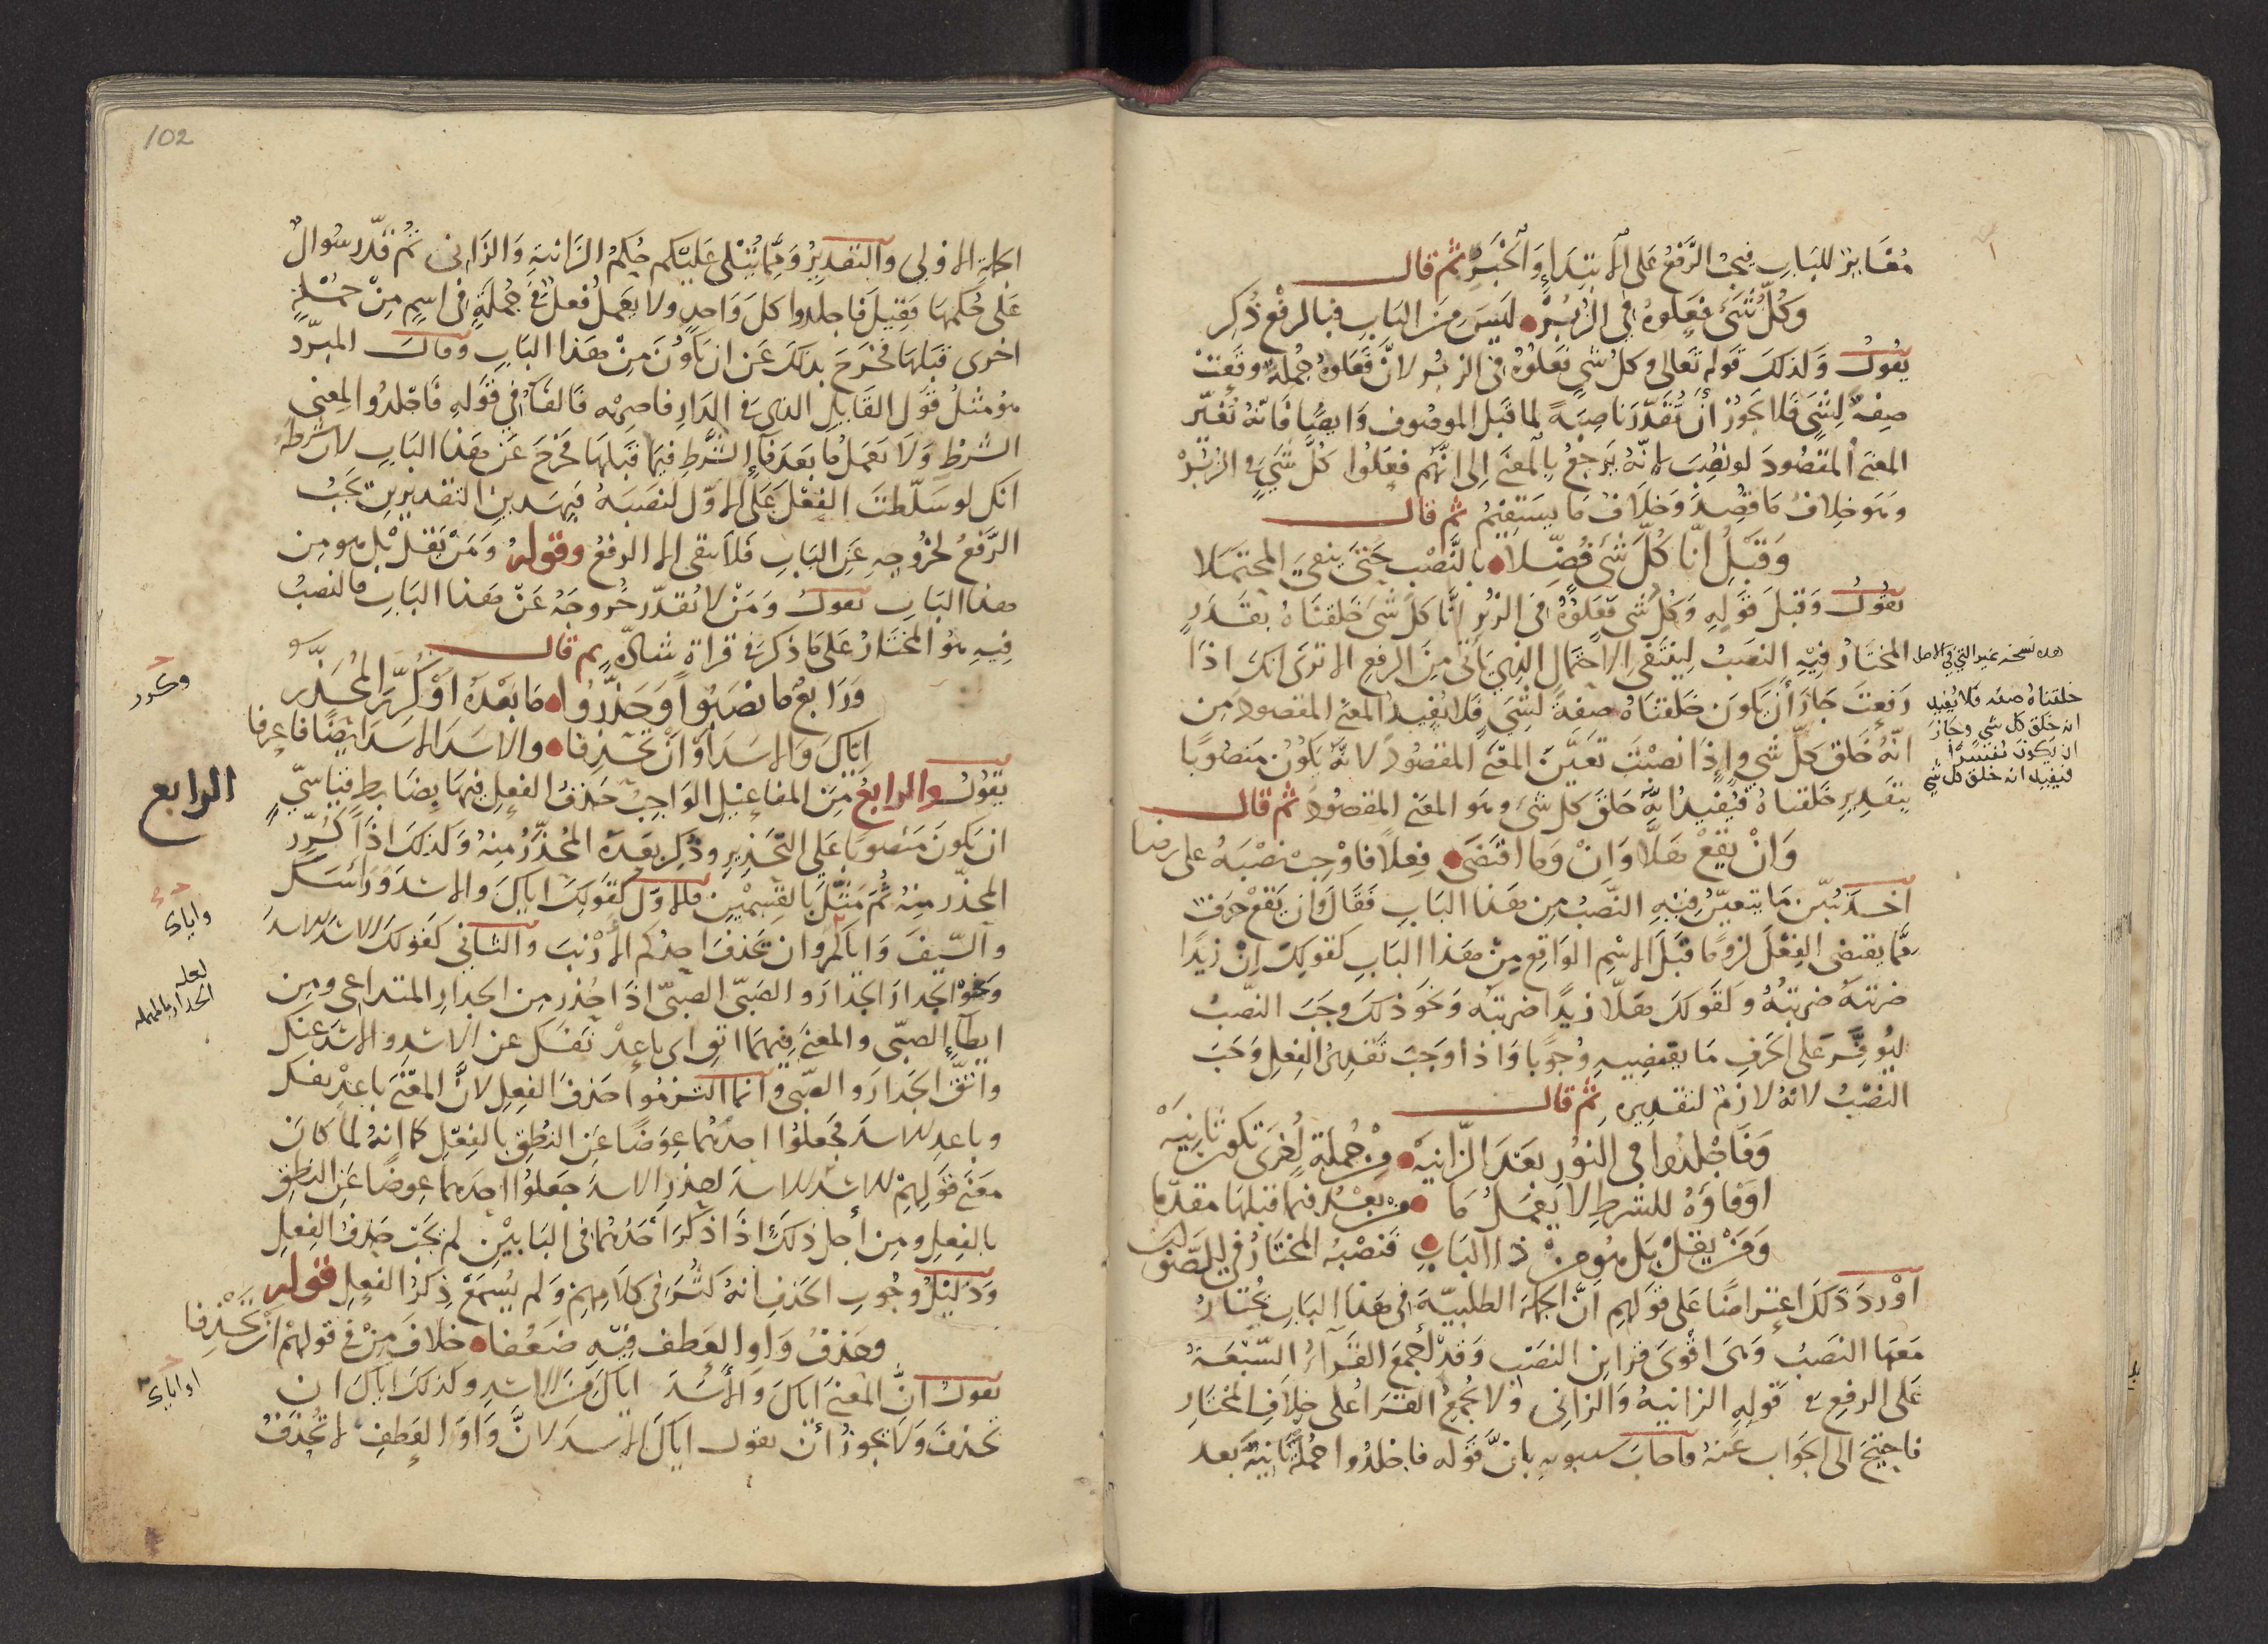 مغاير للباب فيجب الرفع على الابتداء والخبر ثم قال
وكل شيء فعلوه في الزبر ليس من الباب فبالرفع ذكر
يقول ولذلك قوله تعالى وكل شي فعلوه في الزبر لان فعلوه جملة وقعت
صفة لشي فلا يجوز أن تقدر ناصبة لما قبل الموصوف وايضا فانه تغير
المعنى المقصود لو نصب لانه يرجع بالمعنى الى انهم فعلوا كل شي في الزبر
وهو خلاف ما قصد وخلاف ما يستقيم ثم قال
وقبل انا كل شي فضلا بالنصب حتى ينفي المحتملا
يقول وقبل قوله وكل شي فعلوه في الزبر انا كل شي خلقناه بقدر
المختار فيه النصب لينتفي الاحتمال الذي ياتي من الرفع الا ترى انك اذا
رفعت جاز أن يكون خلقناه صفة لشي فلا يفيد المعنى المقصود من
انه خالق كل شي واذا نصبت تعين المعنى المقصود لانه يكون منصوبا
بتقدير خلقناه فيفيد انه خلق كل شي وهو المعنى المقصود ثم قال
وان يقع هلا وان وما اقتضى فعلا فاوجب نصبه على رضا
اخذ يبين ما يتعين فيه النصب من هذا الباب فقال وان يقع حرف
مما يقتضي الفعل لزوما قبل الاسم الواقع من هذا الباب كقولك ان زيدا
ضربته ضربته وكقولك هلا زيدا ضربته ونحو ذلك وجب النصب
ليوفر على الحرف ما يقتضيه وجوبا واذا وجب تقدير الفعل وجب
النصب لانه لازم لتقديره ثم قال
وفاجلدوا في النور بعد الزانيه من جملة اخرى تكون ثانيه
او فاؤه للشرط لا يعمل ما من بعد فيما قبلها مقدما
ومن يقل بل هو من ذا الباب فنصبه المختار في الصواب
اورد ذلك اعتراضا على قولهم ان الجملة الطلبية في هذا الباب يختار
معها النصب وهي اقوى قراين النصب وقد اجمع القراء السبعة
على الرفع في قوله الزانية والزاني ولا يجمع القراء على خلاف المختار
فاحتيج الى الجواب عنه فاجاب سيبويه بان قوله فاجلدوا جملة ثانية بعد
هذه نسخه غير التي في الاصل
خلقناه صفه فلا يفيد
انه خلق كل شي وجاز
ان يكون مفسرا
فيفيد انه خلق كل شي
102
الجملة الاولى والتقدير ومما يتلى عليكم حكم الزانية والزاني ثم قدر سوال
على حكمها فقيل فاجلدوا كل واحد ولا يعمل فعل في جملة في اسم من جملة
اخرى قبلها فخرج بذلك عن ان يكون من هذا الباب وقال المبرد
هو مثل قول القايل الذي في الدار فاضربه فالفاء في قوله فاجلدوا لمعنى
الشرط ولا يعمل ما بعد فاء الشرط فيما قبلها فخرج عن هذا الباب لان شرطه
انك لو سلطت الفعل على الاول لنصبه فبهذين التقديرين يجب
الرفع لخروجه عن الباب فلا يبقى الا الرفع وقوله ومن يقل بل هو من
هذا الباب يقول ومن لا يقدر خروجه عن هذا الباب فالنصب
فيه هو المختار على ما ذكر في قراة شاذة ثم قال
ورابع ما نصبوا وحذروا ما بعده او كرر المحذر
اياك والاسد او ان تحذفا والاسد الاسد ايضا فاعرفا
يقول والرابع من المفاعيل الواجب حذف الفعل فيها بضابط قياسي
ان يكون منصوبا على التحذير وذكر بعده المحذر منه وكذلك اذا كرر
المحذر منه ثم مثل بالقسمين فالاول كقولك اياك والاسد وراسك
والسيف واياكم وان يحذف احدكم الارنب والثاني كقولك الاسد الاسد
ونحو الجدار الجدار والصبي الصبي اذا حذر من الجدار المتداعي ومن
ايطاء الصبي والمعنى فيهما اتق اي باعد نفسك عن الاسد والاسد عنك
واتق الجدار والصبي وانما التزموا حذف الفعل لان المعنى باعد نفسك
وباعد الاسد فجعلوا احدهما عوضا عن النطق بالفعل كما انه لما كان
معنى قولهم الاسد الاسد احذر الاسد جعلوا احدهما عوضا عن النطق
بالفعل ومن اجل ذلك اذا ذكر احدهما في البابين لم يجب حذف الفعل
ودليل وجوب الحذف انه كثر في كلامهم ولم يسمع ذكر الفعل قوله
وحذف واو العطف فيه ضعفا خلاف من في قولهم ان تحذفا
يقول ان المعنى اياك والاسد اياك من الاسد وكذلك اياك ان
تحذف ولا يجوز أن تقول اياك الاسد لان واو العطف لا تحذف
وكرر
الرابع
واياي
لعله
الجدار بالمهمله
او اياي